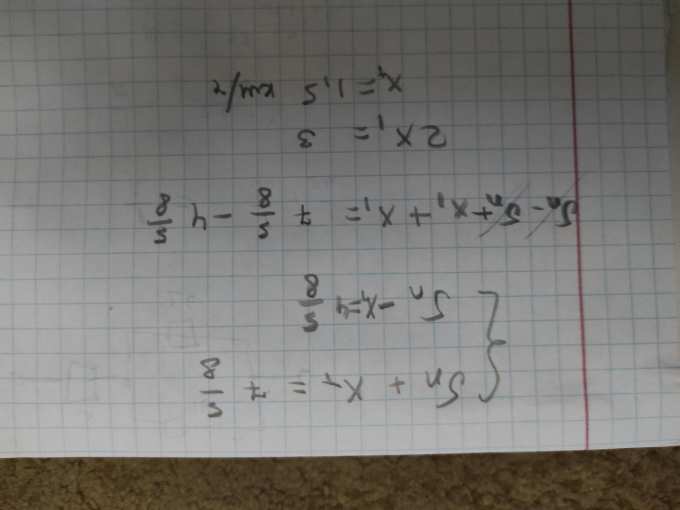 Sn + x₁ = 7 5/8
Sn - x₁ = 4 5/8
Sn - Sn + x₁ + x₁ = 7 5/8 - 4 5/8
2x₁ = 3
x₁ = 1,5 км/ч